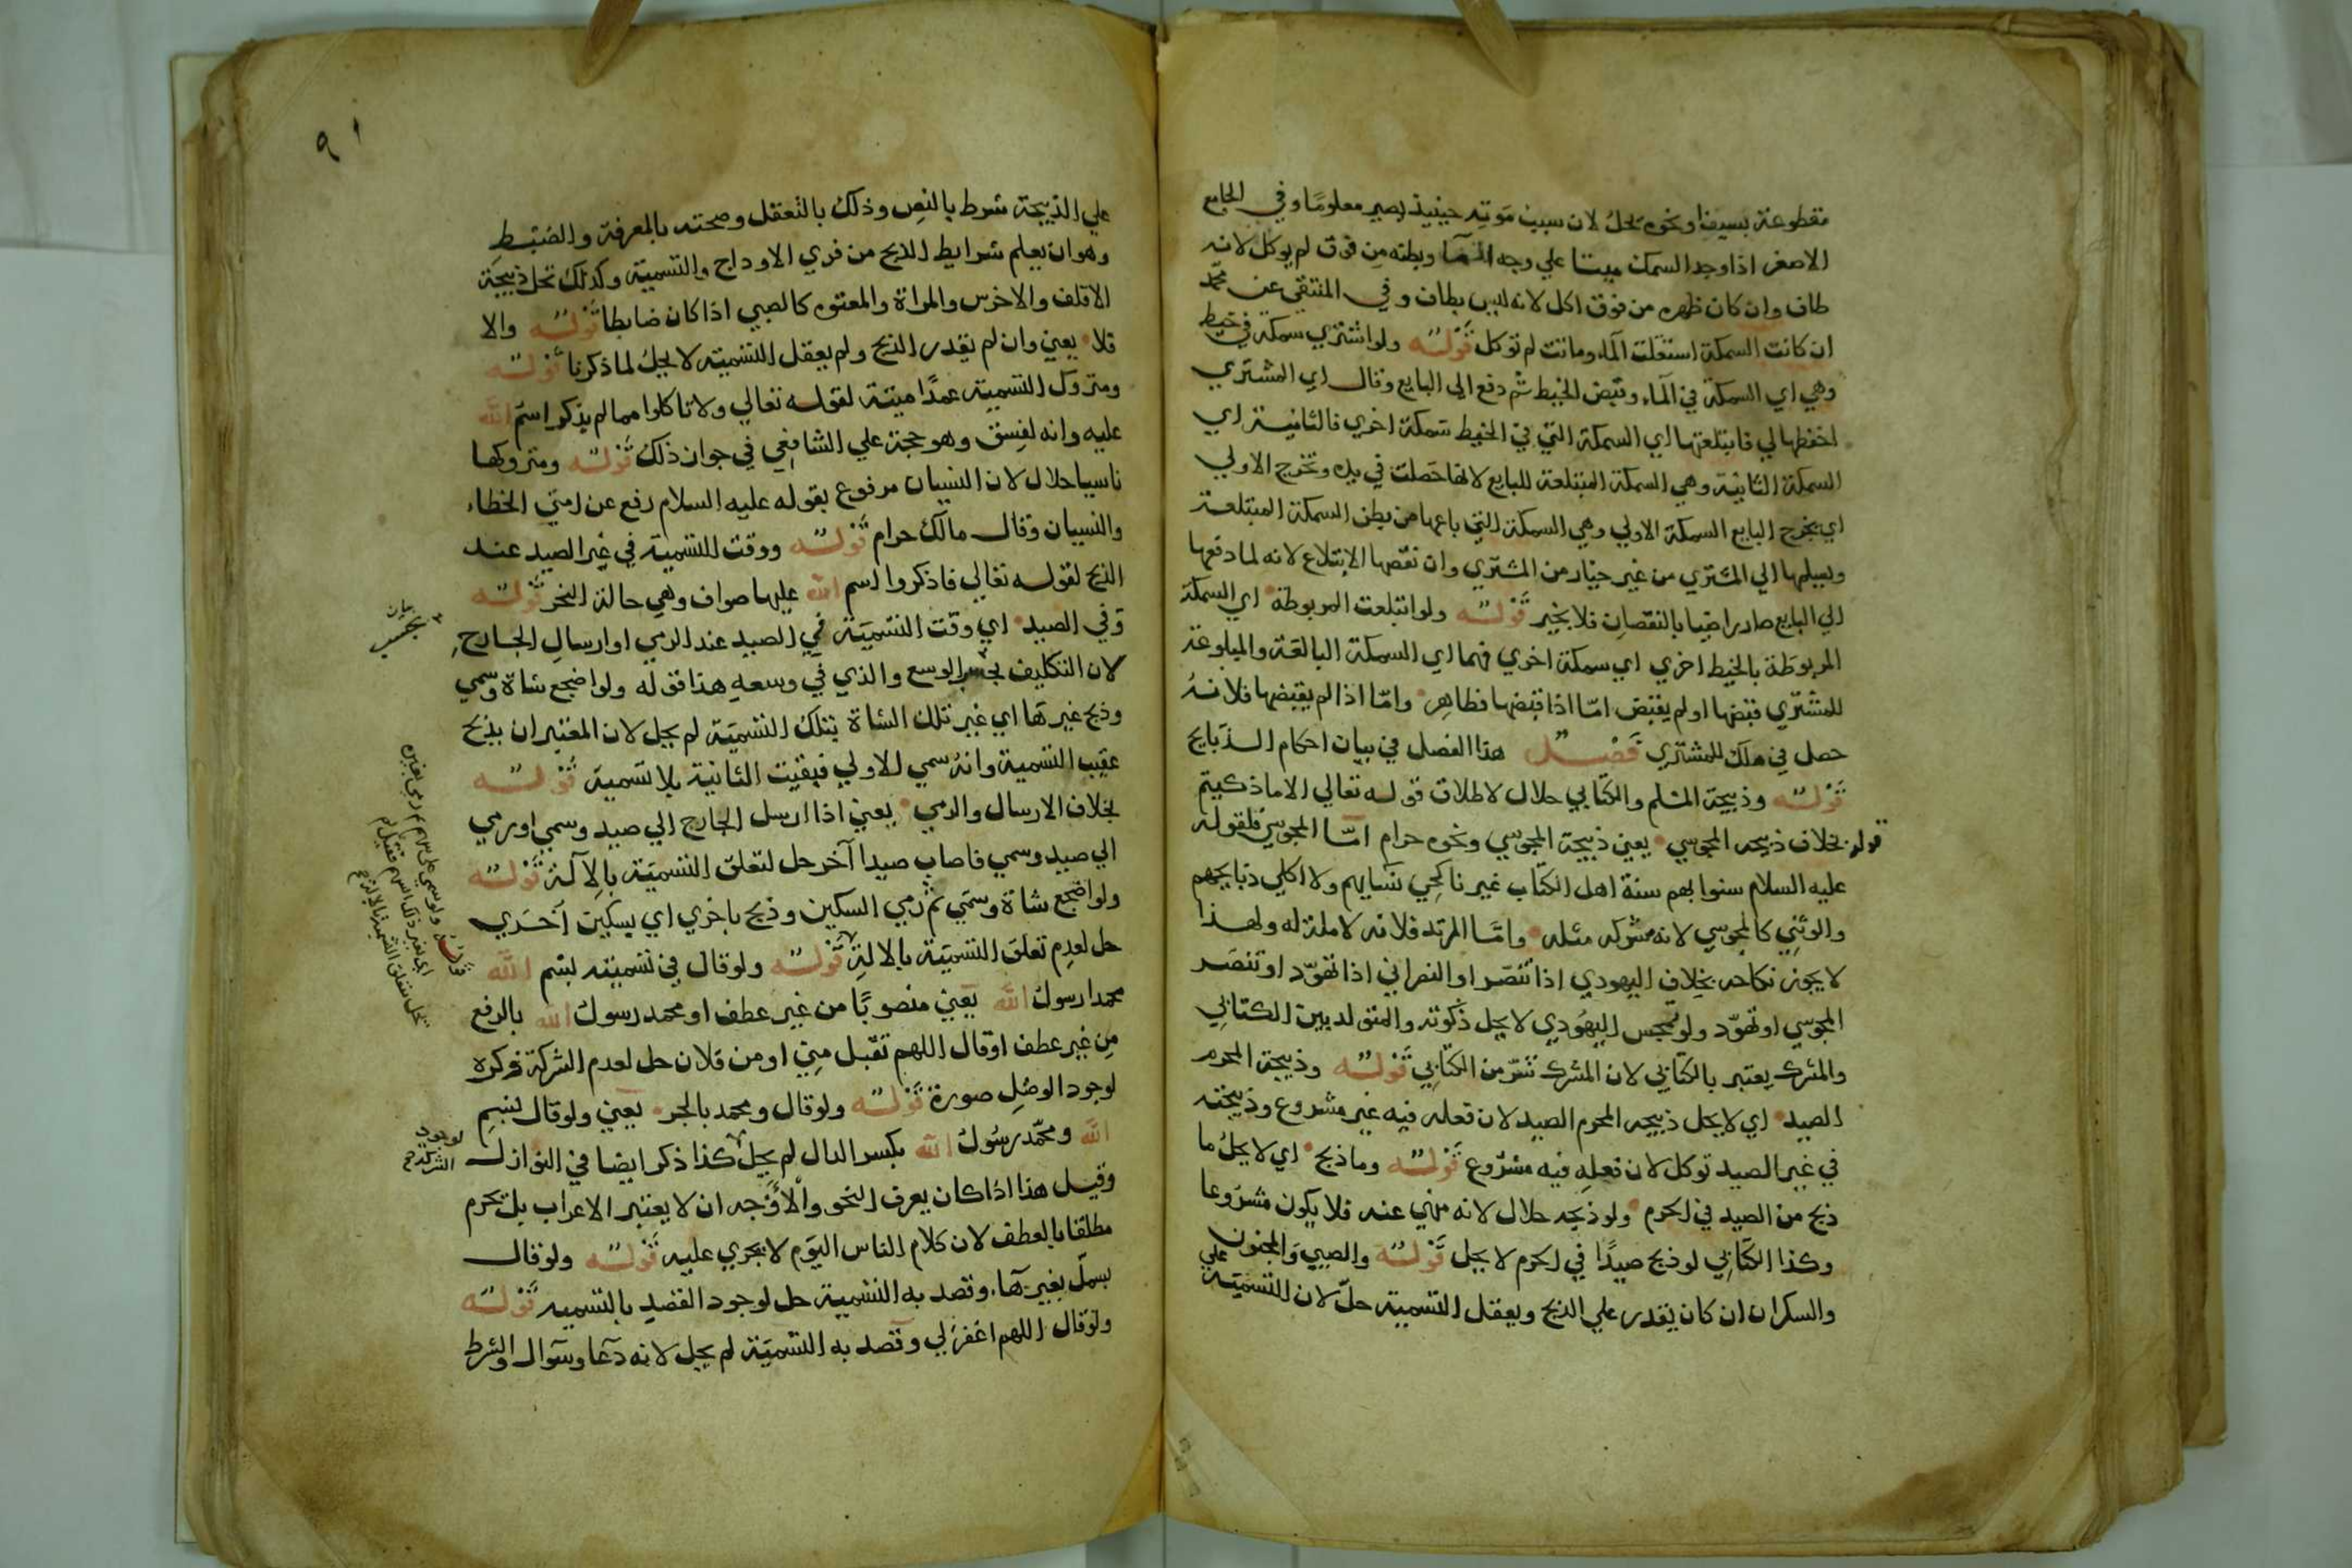 مقطوعة بسيف او نحوه يحل لان سبب موته حينيذ يصير معلوما وفي الجامع
الاصغر اذا وجد السمك ميتا علي وجه الما وبطنه من فوق لم يوكل لانه
طاف وان كان ظهره من فوق اكل لانه ليس بطاف وفي المنتقي عن محمد
ان كانت السمكة استقلت الماء وماتت لم توكل قوله ولو اشتري سمكة في خيط
وهي اي السمكة في الماء وقبض الخيط ثم دفع الي البايع وقال اي المشتري
احفظها لي فابتلعتها اي السمكة التي في الخيط سمكة اخري فالثانية اي
السمكة الثانية وهي السمكة المبتلعة للبايع لانها حصلت في يده وتخرج الاولي
اي يخرج البايع السمكة الاولي وهي السمكة التي باعها من بطن السمكة المبتلعة
ويسلمها الي المشتري من غير خيار من المشتري وان نقصها الابتلاع لانه لما دفعها
الي البايع صار راضيا بالنقصان فلا يخير قوله ولو ابتلعت المربوطة اي السمكة
المربوطة بالخيط اخري اي سمكة اخري فهما اي السمكة البالعة والمبلوعة
للمشتري قبضها او لم يقبض امّا اذا قبضها فظاهر وامّا اذا لم يقبضها فلانه
حصل في ملك المشتري فصل هذا الفصل في بيان احكام الذبايح
قوله وذبيحة المسلم والكتابي حلال لاطلاق قوله تعالي الا ما ذكيتم
قوله بخلاف ذبيحه المجوسي يعني ذبيحة المجوسي ونحوه حرام امّا المجوسي فلقوله
عليه السلام سنوا بهم سنة اهل الكتاب غير ناكحي نسايهم ولا اكلي ذبايحهم
والوثني كالمجوسي لانه مشرك مثله وامّا المرتد فلانه لا ملة له ولهذا
لا يجوز نكاحه بخلاف اليهودي اذا تنصر او النصراني اذا تهوّد او تنصر
المجوسي او تهوّد ولو تمجس اليهودي لا يحل ذكوته والمتولد بين الكتابي
والمشرك يعتبر بالكتابي لان المشرك شرّ من الكتابي قوله وذبيحة المحرم
الصيد اي لا يحل ذبيحه المحرم الصيد لان فعله فيه غير مشروع وذبيحته
في غير الصيد توكل لان فعله فيه مشروع قوله وما ذبح اي لا يحل ما
ذبح من الصيد في الحرم ولو ذبحه حلال لانه منهي عنه فلا يكون مشروعا
وكذا الكتابي لو ذبح صيدًا في الحرم لا يحل قوله والصبي والمجنون
والسكران ان كان يقدر علي الذبح ويعقل التسمية حلّ لان التسمية علي
٩١
علي الذبيحة شرط بالنص وذلك بالتعقل وصحته بالمعرفة والضبط
وهو ان يعلم شرايط الذبح من فري الاوداج والتسمية وكذلك تحل ذبيحة
الاقلف والاخرس والمراة والمعتوه كالصبي اذا كان ضابطا قوله والا
فلا يعني وان لم يقدر الذبح ولم يعقل التسمية لا يحل لما ذكرنا قوله
ومتروك التسمية عمدًا ميتة لقوله تعالي ولا تاكلوا مما لم يذكر اسم الله
عليه وانه لفسق وهو حجة علي الشافعي في جواز ذلك قوله ومتروكها
ناسيا حلال لان النسيان مرفوع بقوله عليه السلام رفع عن امتي الخطاء
والنسيان وقال مالك حرام قوله ووقت التسمية في غير الصيد عند
الذبح لقوله تعالي فاذكروا اسم الله عليها صواف وهي حالة النحر قوله
وفي الصيد اي وقت التسمية في الصيد عند الرمي او ارسال الجارح
لان التكليف بحسب الوسع والذي في وسعه هذا قوله ولو اضجع شاة وسمي
بيان
بحسب
وذبح غيرها اي غير تلك الشاة بتلك التسمية لم يحل لان المعتبر ان يذبح
عقيب التسمية وانه سمي الاولي فبقيت الثانية بلا تسمية قوله
بخلاف الارسال والرمي يعني اذا ارسل الجارح الي صيد وسمي او رمي
الي صيد وسمي فاصاب صيدا آخر حل لتعلق التسمية بالآلة قوله
ولو اضجع شاة وسمي ثم رمي السكين وذبح باخري اي بسكين آخري
حل لعدم تعلق التسمية بالالة قوله ولو قال في تسميته بسم الله
قوله ولو سمي علي سهم ورمي بغيره
اي بغير ذلك السهم فقتل لم
يحل لتعلق التسمية بالالة
محمدا رسول الله يعني منصوبًا من غير عطف او محمد رسول الله بالرفع
من غير عطف او قال اللهم تقبل مني او من فلان حل لعدم الشركة وكره
لوجود الوصل صورة قوله ولو قال ومحمد بالجر يعني ولو قال بسم
الله ومحمّد رسول الله بكسر الدال لم يحل كذا ذكر ايضا في النوازل
لوجود
الشركة صح
وقيل هذا اذا كان يعرف النحو والأوجه ان لا يعتبر الاعراب بل يحرم
مطلقا بالعطف لان كلام الناس اليوم لا يجري عليه قوله ولو قال
بسمل بغير هاء وقصد به التسمية حل لوجود القصد بالتسميه قوله
ولو قال اللهم اغفر لي وقصد به التسمية لم يحل لانه دعا وسوال والشرط